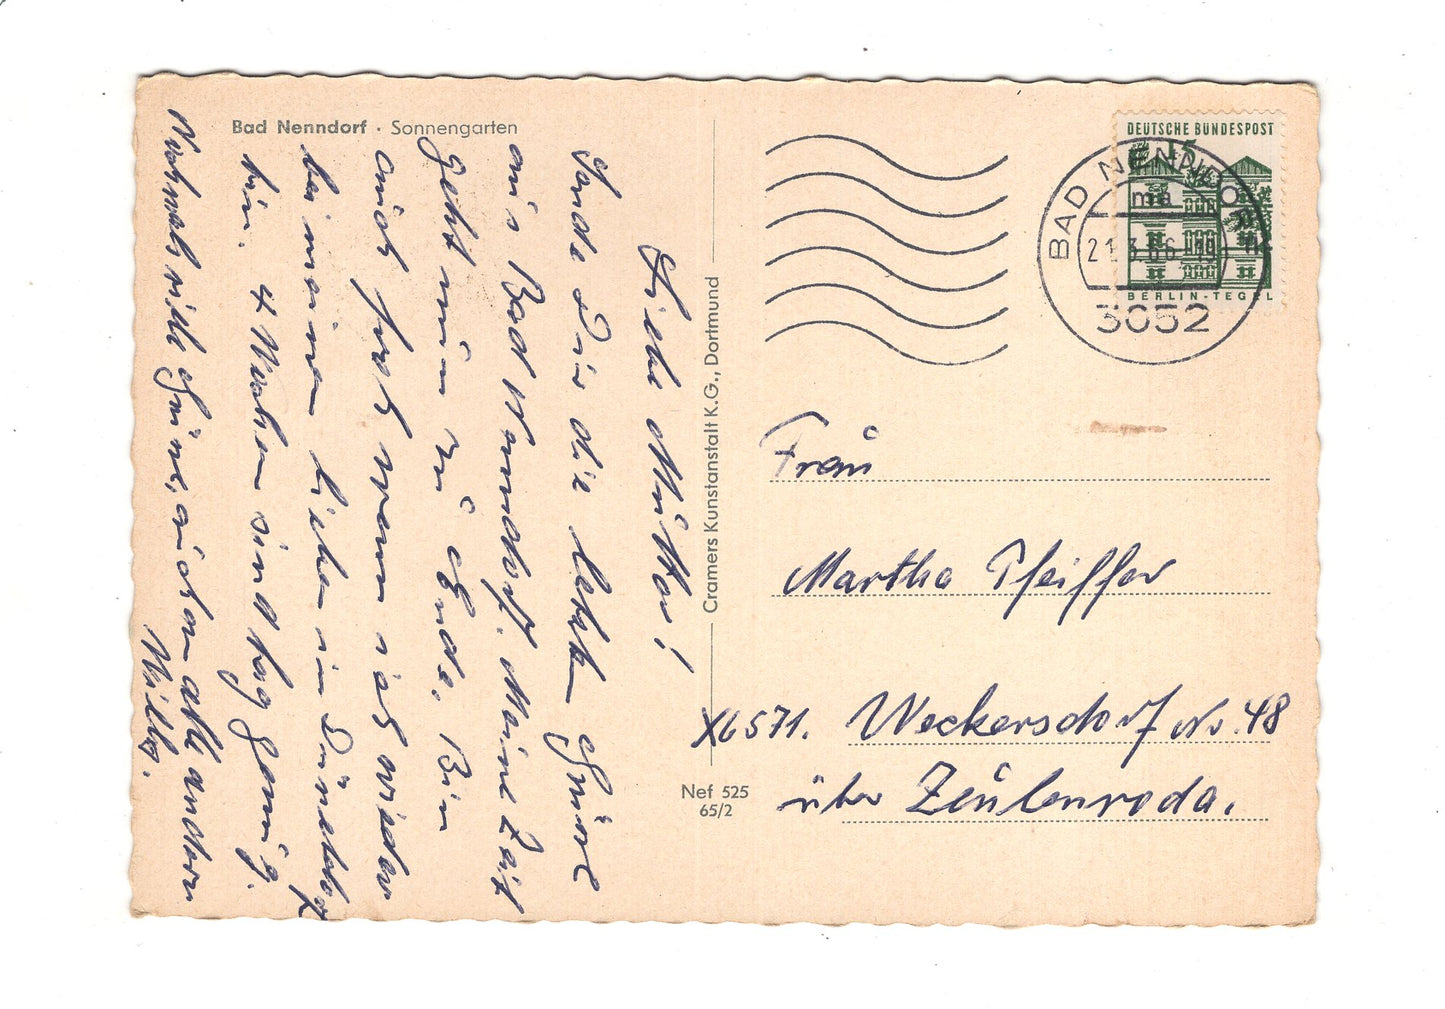 Bad Nenndorf · Sonnengarten
Liebe Mutter!
Sende Dir die letzten Grüße
aus Bad Nenndorf. Meine Zeit
geht nun zu Ende, Bin
auch froh wenn ich wieder
bei meinen Lieben in Düsseldorf
bin. 4 Wochen sind lang genug.
Nochmals viele Grüße, auch an alle andern
Willy.
Cramers Kunstanstalt K.G., Dortmund
Nef 525
65/2
DEUTSCHE BUNDESPOST
15
BERLIN-TEGEL
BAD NENNDORF
ma
21.3.66.-19
3052
Frau
Martha Pfeiffer
X6571. Weckersdorf Nr. 48
über Zeulenroda.